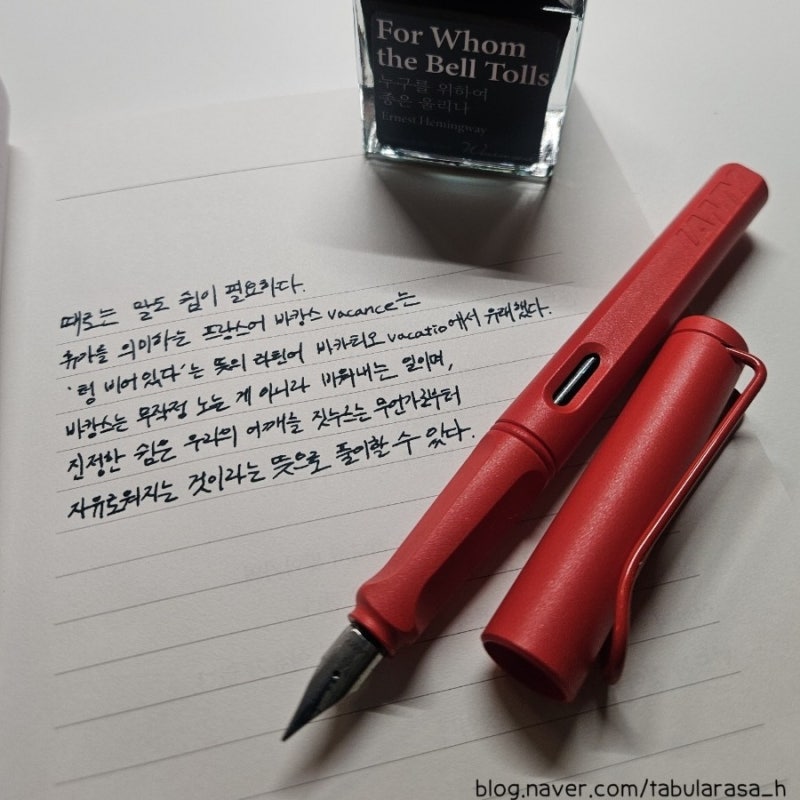 For Whom
the Bell Tolls
누구를 위하여
종은 울리나
Ernest Hemingway
LAMY
때로는 말도 쉼이 필요하다.
휴가를 의미하는 프랑스어 바캉스 vacance는
'텅 비어 있다'는 뜻의 라틴어 바카티오 vacatio에서 유래했다.
바캉스는 무작정 노는 게 아니라 비워내는 일이며,
진정한 쉼은 우리의 어깨를 짓누르는 무언가로부터
자유로워지는 것이라는 뜻으로 풀이할 수 있다.
blog.naver.com/tabularasa_h